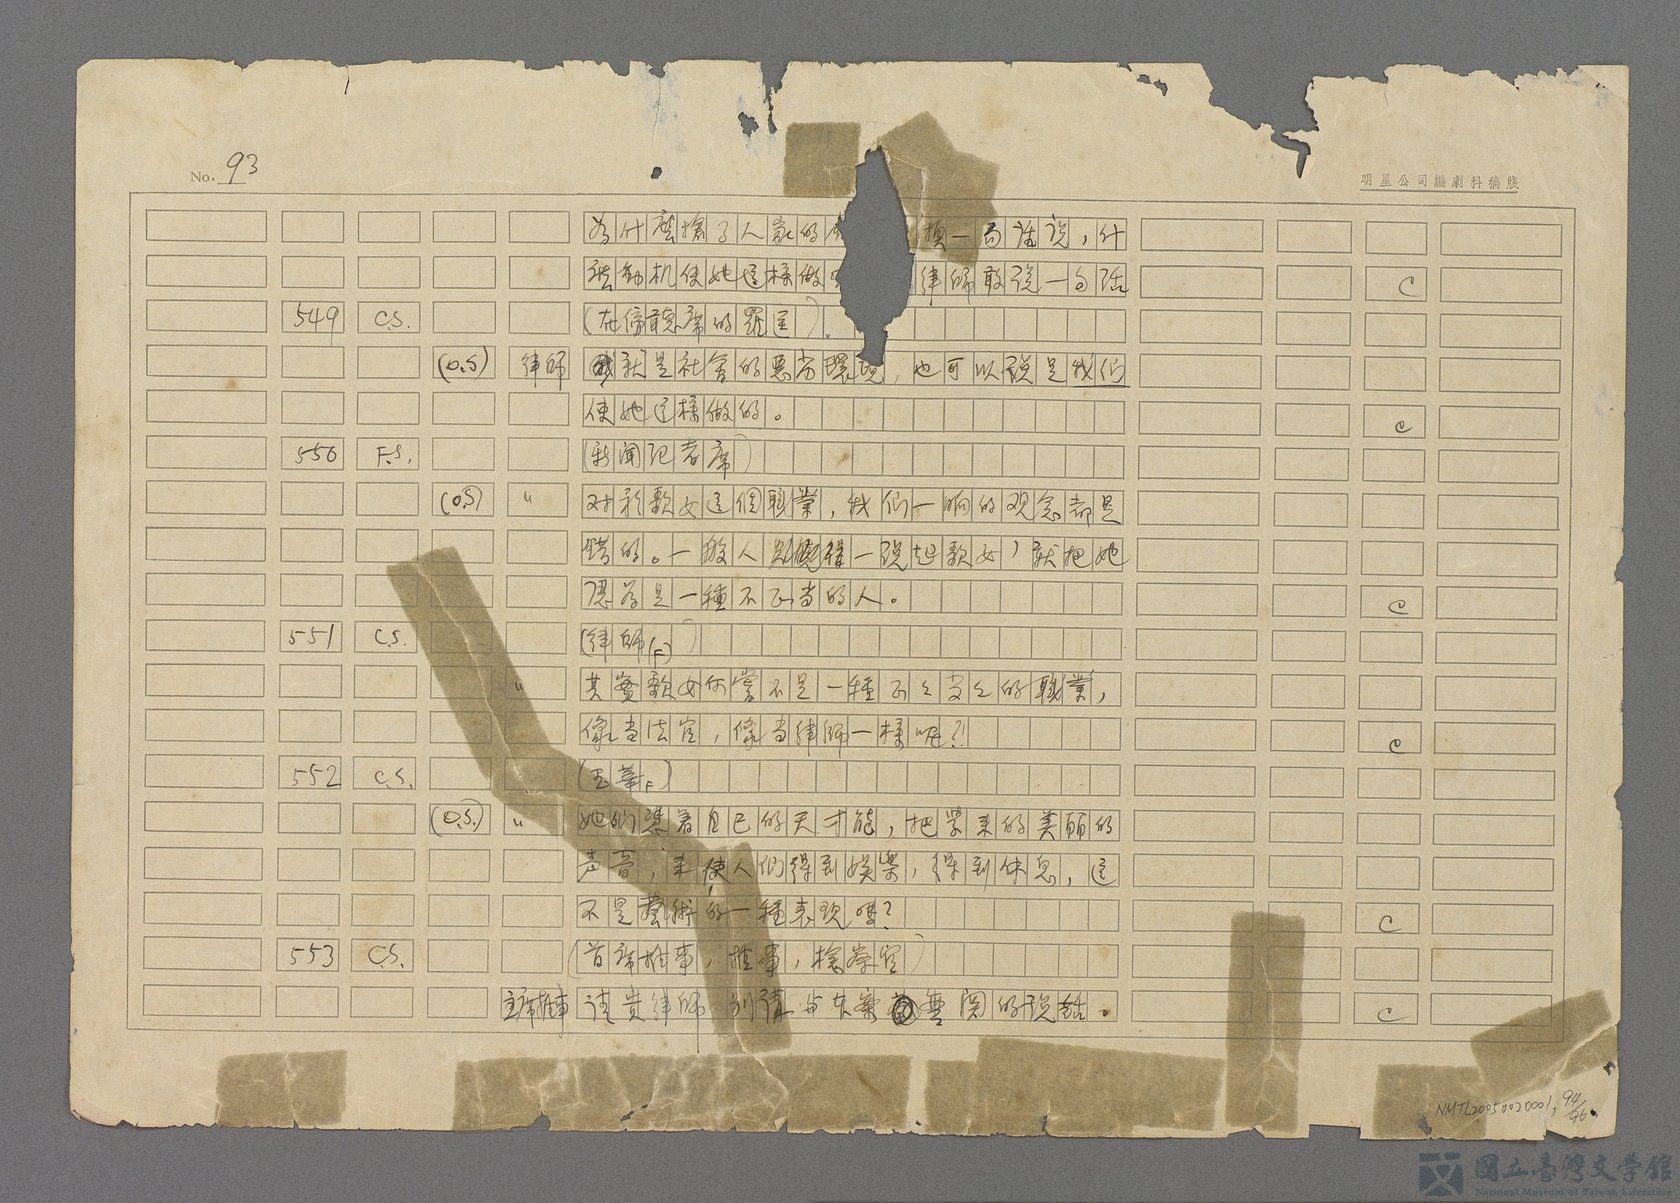 No. 93
明星公司編劇科稿牋
為什麼搶了人家的 換一句話說，什
麼動机使她這樣做 律師敢說一句話 C
549 C.S. (在傍聽席的羅 )。
(O.S) 律師 就是社會的惡劣環境，也可以說是我們
使她這樣做的。 C
550 F.S. (新聞記者席)
(O.S) 〃 对於歌女這個職業，我们一晌的观念都是
錯的。一般人 一說起歌女，就把她
認為是一種不正当的人。 C
551 C.S. (律師(F))
〃 其實歌女何嘗不是一種正々当々的職業，
像当法官，像当律師一樣呢?! C
552 C.S. (玉華F)
(O.S.) 〃 她们憑着自己的天才能，把学来的美丽的
声音，来使人们得到娱樂，得到休息，這
不是藝術的一種表现嗎? C
553 C.S. (首席推事，推事，檢察官)
主席推事 请贵律師别講与本案無関的说話。 C
NMTL20050020001, 94/96
國立臺灣文學館
National Museum of Taiwan Literature